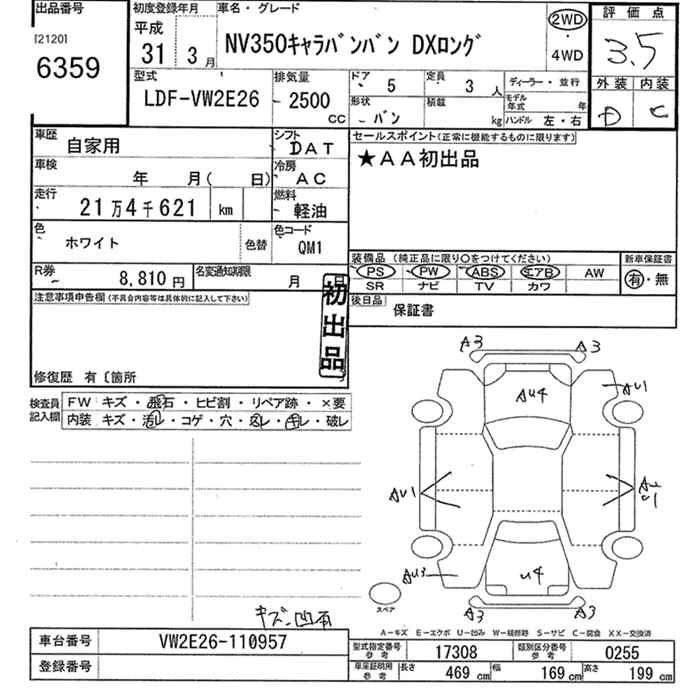 出品番号
[2120]
6359
初度登録年月
平成
31 3月
車名・グレード
NV350キャラバンバン DXロング
2WD
4WD
評価点
3.5
外装 内装
D C
型式
LDF-VW2E26
排気量
2500
CC
ドア 5
形状 バン
定員 3 人
積載 kg
ディーラー・並行
モデル年式 年
ハンドル 左・右
車歴 自家用
シフト DAT
車検 年 月( 日)
冷房 AC
走行 21万4千621 km
燃料 軽油
色 ホワイト
色替
色コード QM1
R券 8,810円
名変通知期限 月 日
セールスポイント(正常に機能するものに限ります)
★AA初出品
装備品 (純正品に限り〇をつけてください)
PS PW ABS エアB AW
SR ナビ TV カワ
新車保証書
有・無
後日品
保証書
注意事項申告欄(不具合内容等は具体的に記入して下さい)
初出品
修復歴 有〔箇所 〕
検査員記入欄
FW キズ・飛石・ヒビ割・リペア跡・×要
内装 キズ・汚レ・コゲ・穴・スレ・キレ・破レ
A3 A3
AU4
AU1
AU1
AU1
AU3
U4
A3 A3
スペア
キズ、凹有
A-キズ E-エクボ U-凹み W-補修跡 S-サビ C-腐食 XX-交換済
車台番号 VW2E26-110957
登録番号
型式指定番号 参考 17308
類別区分番号 参考 0255
車庫証明用 参考 長さ 469 cm 幅 169 cm 高さ 199 cm